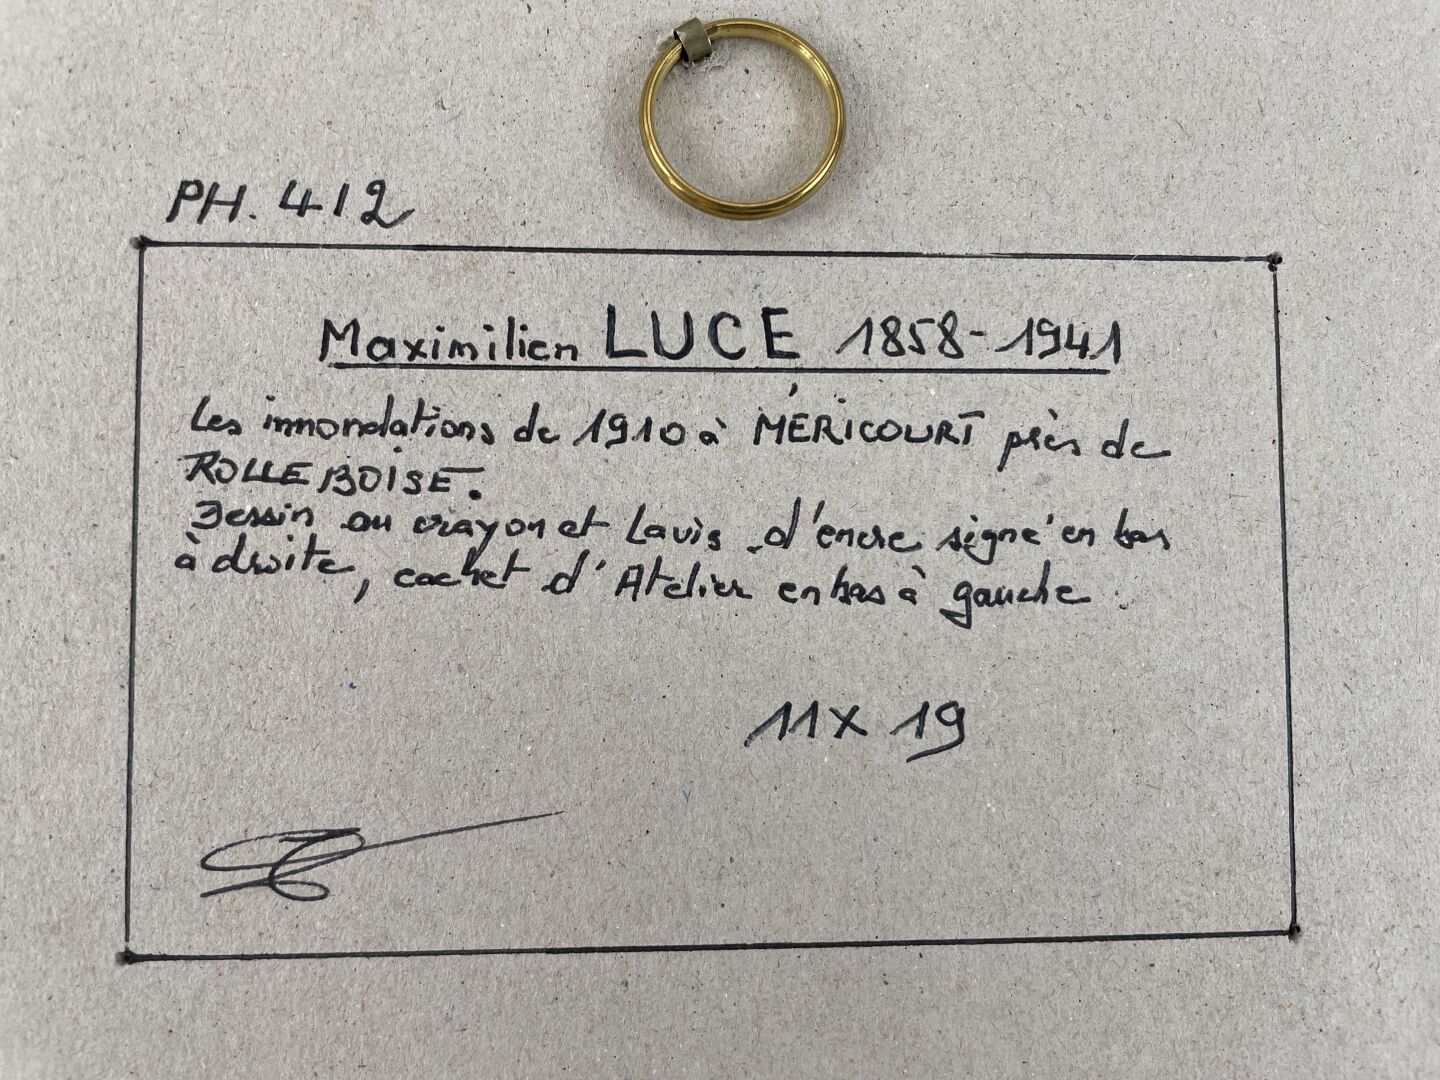 PH. 412
Maximilien LUCE 1858-1941
Les innondations de 1910 à MÉRICOURT près de
ROLLEBOISE.
Dessin au crayon et lavis d'encre signé en bas
à droite, cachet d'Atelier en bas à gauche.
11 x 19